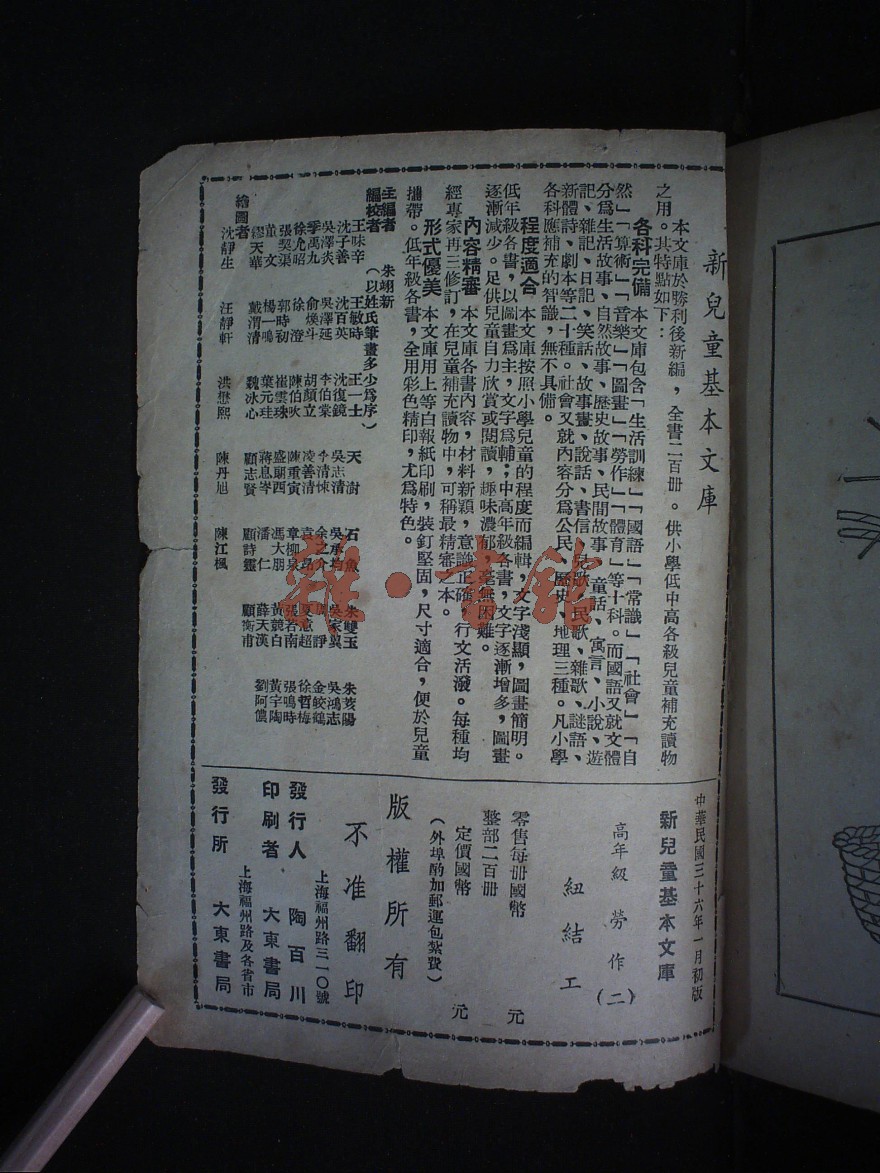 新兒童基本文庫
本文庫於勝利後新編，全書二百册。供小學低中高各級兒童補充讀物
之用。其特點如下：
各科完備　本文庫包含「生活訓練」「國語」「常識」「社會」「自
然」「算術」「音樂」「圖畫」「勞作」「體育」等十科。而國語又就文體
分爲生活故事、自然故事、歷史故事、民間故事、童話、寓言、小說、遊
記、雜記、日記、笑話、故事畫、說話、書信、兒歌、民歌、雜歌、謎語、
新體詩、劇本等二十種。社會又就內容分爲公民、歷史、地理三種。凡小學
各科應補充的智識，無不具備。
程度適合　本文庫按照小學兒童的程度而編輯，文字淺顯，圖畫簡明。
低年級各書，以圖畫爲主，文字爲輔；中高年級各書，文字逐漸增多，圖畫
逐漸減少。足供兒童自力欣賞或閱讀，趣味濃郁，毫無困難。
內容精審　本文庫各書內容，材料新穎，意識正確，行文活潑。每種均
經專家再三修訂，在兒童補充讀物中，可稱最精審之本。
形式優美　本文庫用上等白報紙印刷，裝釘堅固，尺寸適合，便於兒童
攜帶。低年級各書，全用彩色精印，尤爲特色。
主編者　朱翊新
編校者　（以姓氏筆畫多少爲序）
王味辛　王敏時　王一士　天澍　石魚　朱雙玉　朱菱陽
沈子善　沈百英　沈復鏡　吳志清　吳承均　吳家奐　吳鴻志
吳澤炎　吳澤延　李伯棠　李清悚　余之介　周靜　金皎鶴
季萬九　俞煥斗　胡顏立　凌善清　袁昂　夏意超　徐哲梅
徐允昭　徐澄　陳伯吹　陳重寅　章柳泉　張若南　張鳴時
張契渠　郭時初　崔雲珠　盛朗西　馮大朋　黃競白　黃宇陶
董文　楊一鳴　葉元珪　蔣息岑　潘仁　薛天漢　劉阿儂
繆天華　戴渭清　魏冰心　顧志賢　顧詩靈　顧衡甫
繪圖者
沈靜生　汪靜軒　洪懋熙　陳丹旭　陳江楓
中華民國三十六年一月初版
新兒童基本文庫
高年級　勞作（二）
紐結工
零售每册國幣　元
整部二百册
定價國幣　元
（外埠酌加郵運包紮費）
版權所有
不准翻印
上海福州路三一〇號
發行人　陶百川
印刷者　大東書局
上海福州路及各省市
發行所　大東書局
雜·書館